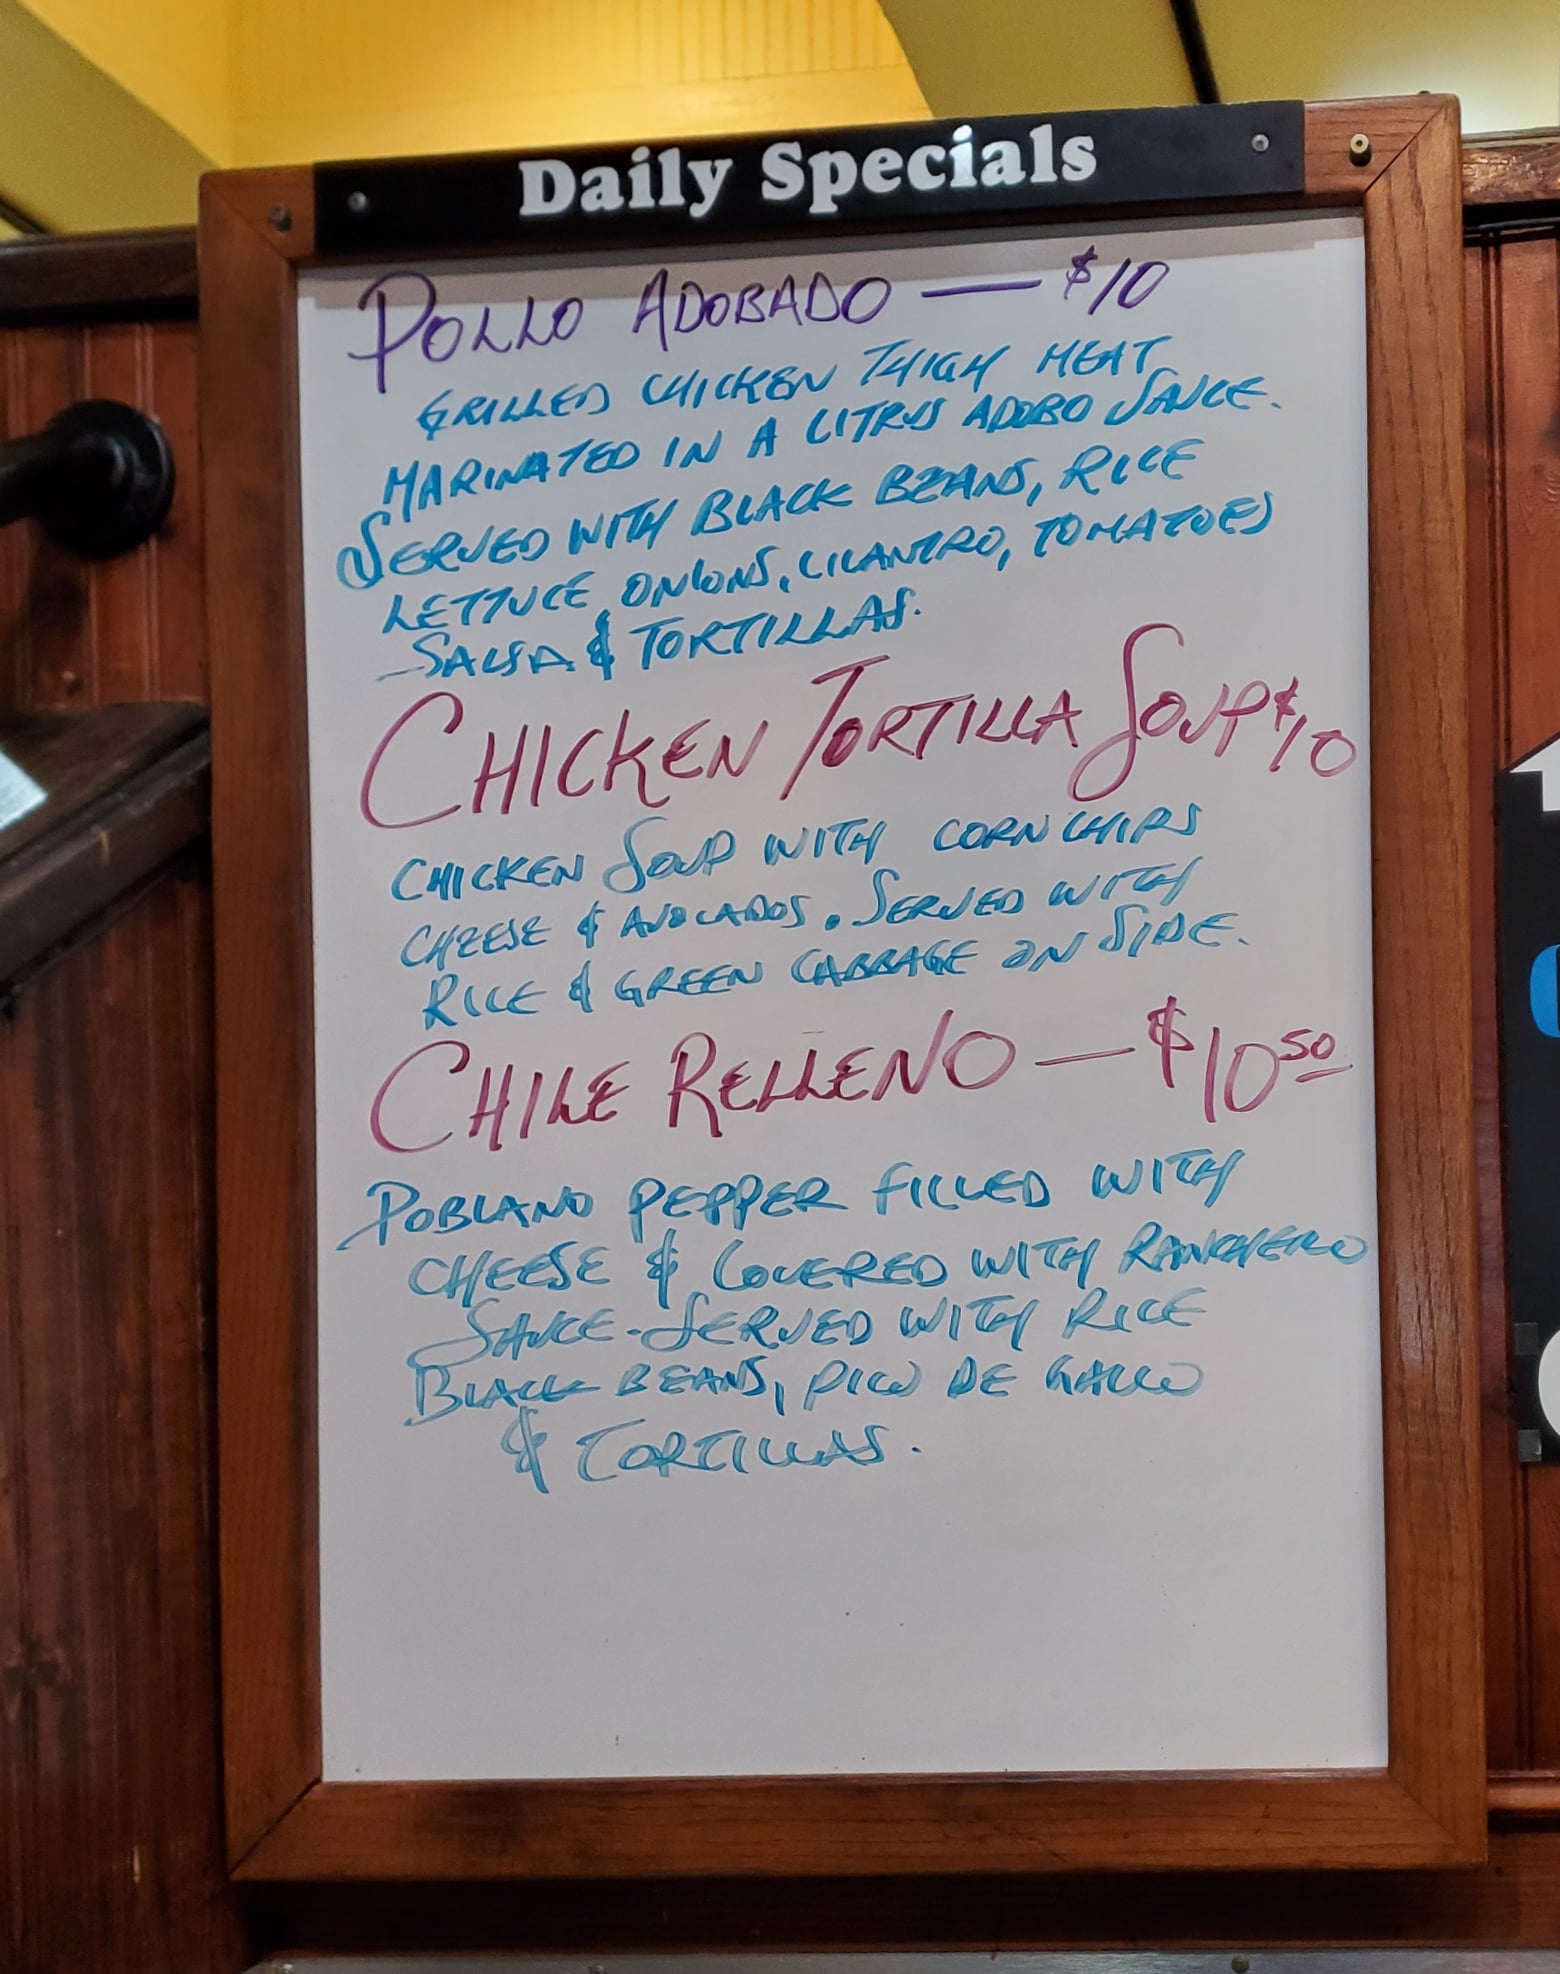 Daily Specials
POLLO ADOBADO — $10
GRILLED CHICKEN THIGH MEAT
MARINATED IN A CITRUS ADOBO SAUCE.
SERVED WITH BLACK BEANS, RICE
LETTUCE, ONIONS, CILANTRO, TOMATOES
SALSA & TORTILLAS.
CHICKEN TORTILLA SOUP $10
CHICKEN SOUP WITH CORN CHIPS
CHEESE & AVOCADOS. SERVED WITH
RICE & GREEN CABBAGE ON SIDE.
CHILE RELLENO — $10 50
POBLANO PEPPER FILLED WITH
CHEESE & COVERED WITH RANCHERO
SAUCE. SERVED WITH RICE
BLACK BEANS, PICO DE GALLO
& TORTILLAS.